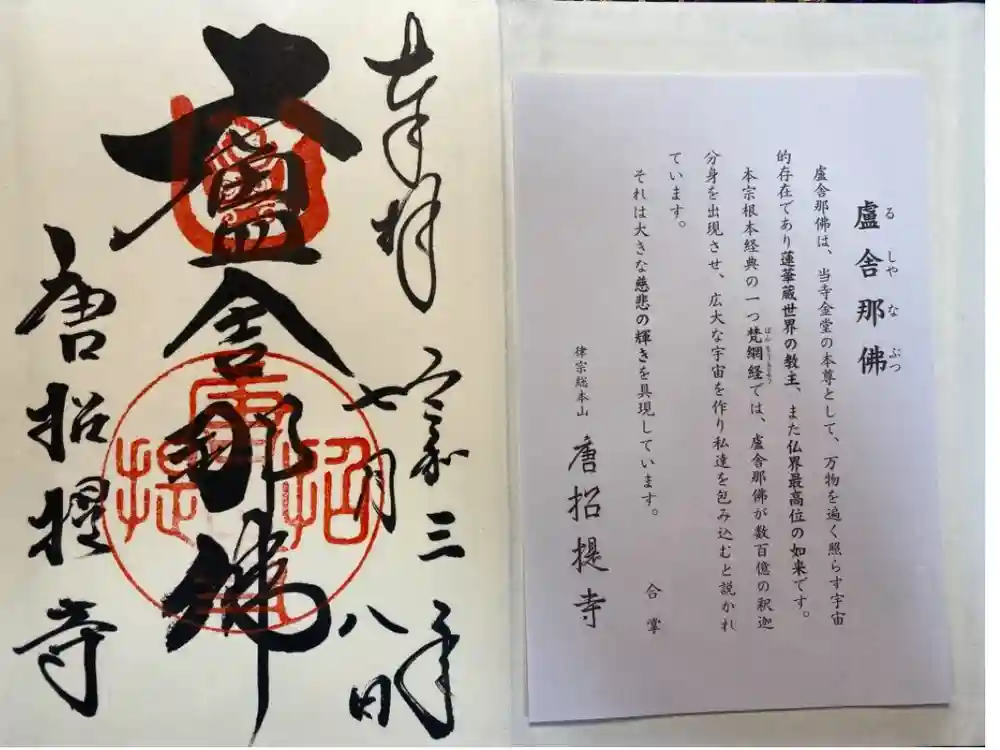 奉拝
令和三年
七月八日
盧舎那佛
唐招提寺
盧舎那佛
るしやなぶつ
盧舎那佛は、当寺金堂の本尊として、万物を遍く照らす宇宙
的存在であり蓮華蔵世界の教主、また仏界最高位の如来です。
本宗根本経典の一つ梵網経では、盧舎那佛が数百億の釈迦
分身を出現させ、広大な宇宙を作り私達を包み込むと説かれ
ています。
それは大きな慈悲の輝きを具現しています。
合掌
律宗総本山 唐招提寺